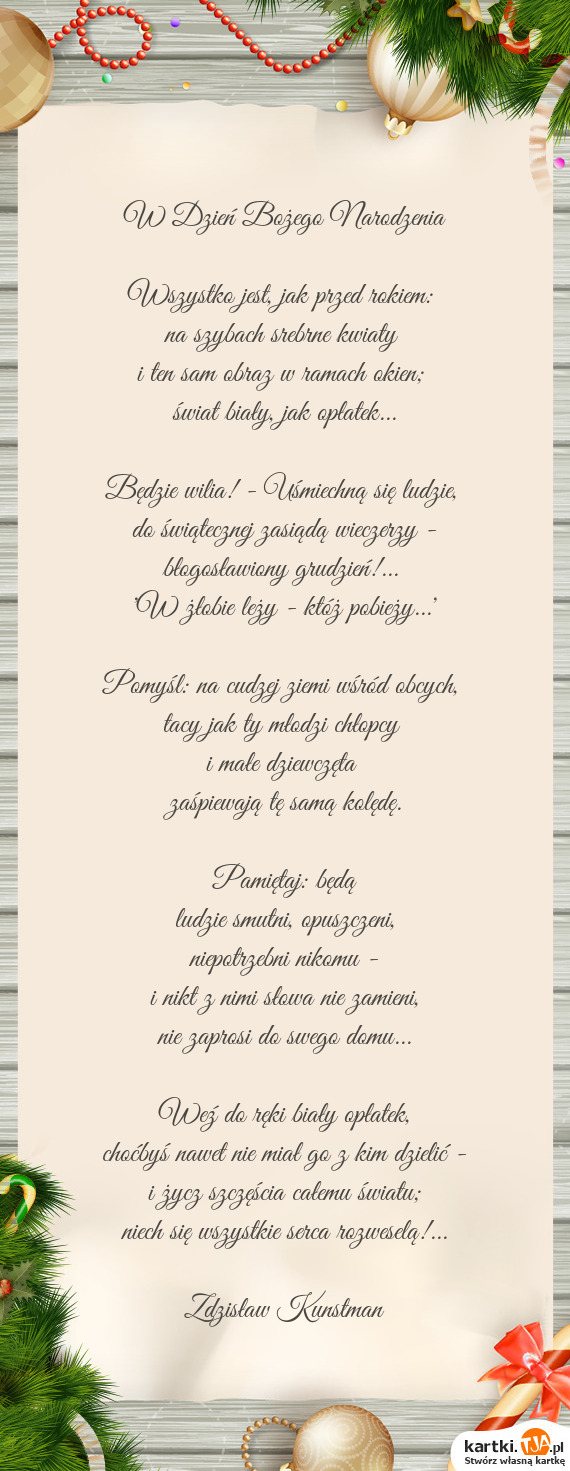 W Dzień Bożego Narodzenia
Wszystko jest, jak przed rokiem:
na szybach srebrne kwiaty
i ten sam obraz w ramach okien;
świat biały, jak opłatek...
Będzie wilia! - Uśmiechną się ludzie,
do świątecznej zasiądą wieczerzy -
błogosławiony grudzień!...
'W żłobie leży - któż pobieży...'
Pomyśl: na cudzej ziemi wśród obcych,
tacy jak ty młodzi chłopcy
i małe dziewczęta
zaśpiewają tę samą kolędę.
Pamiętaj: będą
ludzie smutni, opuszczeni,
niepotrzebni nikomu -
i nikt z nimi słowa nie zamieni,
nie zaprosi do swego domu...
Weź do ręki biały opłatek,
choćbyś nawet nie miał go z kim dzielić -
i życz szczęścia całemu światu;
niech się wszystkie serca rozweselą!...
Zdzisław Kunstman
kartki.TJA.pl
Stwórz własną kartkę